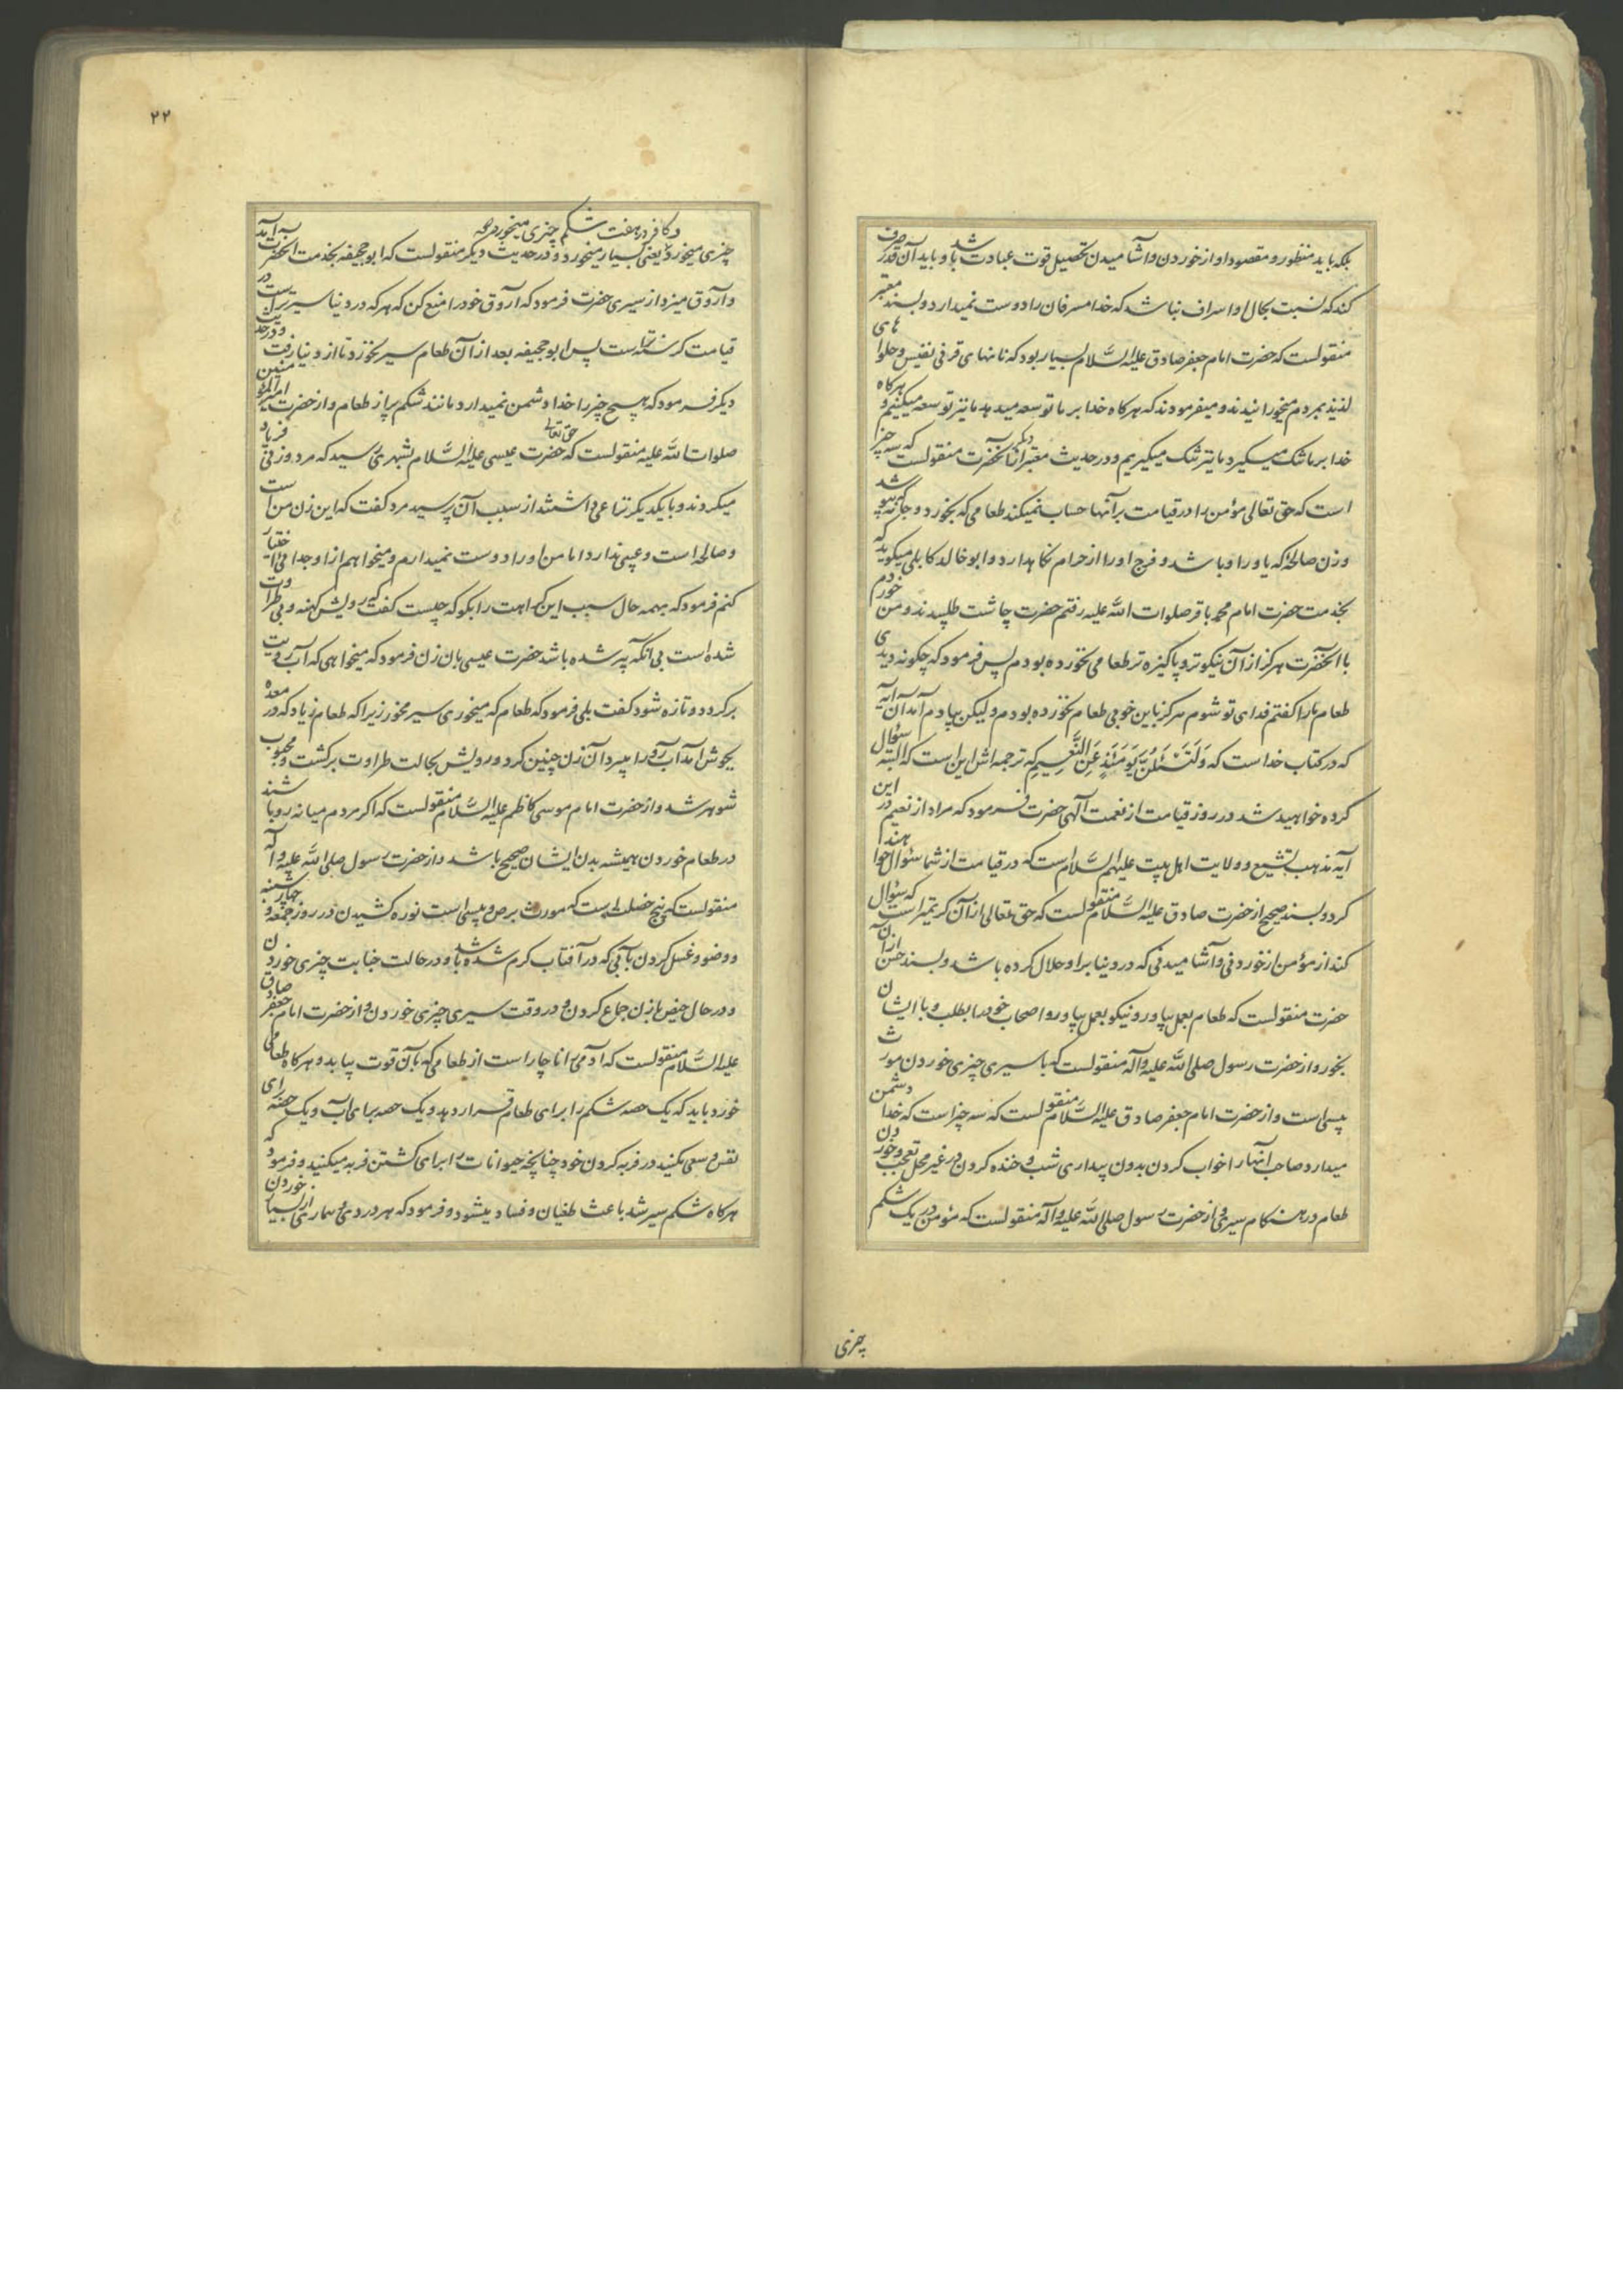 بلکه باید منظور و مقصود او از خوردن و آشامیدن تحصیل قوت عبادت باشد و باید آن قدر صرف
کند که نسبت بحال او اسراف نباشد که خدا مسرفان را دوست نمیدارد و بسند معتبر
منقولست که حضرت امام جعفر صادق علیه السَّلام بسیار بود که نانهای قرنی نفیس و حلواهای
لذیذ بمردم میخورانیدند و میفرمودند که هرکاه خدا بر ما توسعه میدهد ما نیز توسعه میکنیم و هرکاه
خدا بر ما تنک میکیرد ما نیز تنک میکیریم و در حدیث معتبر دیکر از آنحضرت منقولست که سه چیز
است که حق تعالی مؤمن را در قیامت بر آنها حساب نمیکند طعامی که بخورد و جامه که بپوشد
و زن صالحهٔ که یاور او باشد و فرج او را از حرام نکاهدارد و ابو خالد کابلی میکوید که
بخدمت حضرت امام محمد باقر صلوات اللّه علیه رفتم حضرت چاشت طلبیدند و من خوردم
با آنحضرت هرکز از آن نیکوتر و پاکیزه تر طعامی نخورده بودم پس فرمود که چکونه دیدی
طعام ما را کفتم فدای تو شوم هرکز باین خوبی طعام نخورده بودم ولیکن بیادم آمد آن آیه
که در کتاب خداست که وَلَتُسْئَلُنَّ یَوْمَئِذٍ عَنِ النَّعِیمِ که ترجمه اش این است که البته سؤال
کرده خواهید شد در روز قیامت از نعمت الهی حضرت فرمود که مراد از نعیم در این
آیه مذهب تشیع و ولایت اهل بیت علیهم السَّلام است که در قیامت از شما سؤال خواهند
کرد و بسند صحیح از حضرت صادق علیه السَّلام منقولست که حق تعالی از آن کریمتر است که سؤال
کند از مؤمن از خوردنی و آشامیدنی که در دنیا بر او حلال کرده باشد و بسند حسن از آن
حضرت منقولست که طعام بعمل بیاور و نیکو بعمل بیاور و اصحاب خود را بطلب و با ایشان
بخور و از حضرت رسول صلی اللّه علیه وآله منقولست که با سیری چیزی خوردن مورث
پیسی است و از حضرت امام جعفر صادق علیه السَّلام منقولست که سه چیز است که خدا دشمن
میدارد صاحب آنها را خواب کردن بدون بیداری شب و خنده کردن در غیر محل تعجب و خوردن
طعام در هنکام سیری و از حضرت رسول صلی اللّه علیه وآله منقولست که مؤمن در یک شکم
چیزی
۲۲
و کافر در هفت شکم چیزی میخورد
چیزی میخورد یعنی بسیار میخورد و در حدیث دیکر منقولست که ابو جحیفه بخدمت آنحضرت آمد
و آروق میزد از سیری حضرت فرمود که آروق خود را منع کن که هر که در دنیا سیرتر است در
قیامت کرسنه تر است پس ابو جحیفه بعد از آن طعام سیر نخورد تا از دنیا رفت و در حدیث
دیکر فرمود که هیچ چیز را خدا دشمن نمیدارد مانند شکم پر از طعام و از حضرت امیر المؤمنین
صلوات اللّه علیه منقولست که حق تعالی حضرت عیسی علیه السَّلام بشهری رسید که مرد و زنی فریاد
میکردند و با یکدیکر نزاعی داشتند از سبب آن پرسید مرد کفت که این زن من است
و صالحه است و عیبی ندارد اما من او را دوست نمیدارم و میخواهم از او جدائی اختیار
کنم فرمود که بهمه حال سبب این کراهت را بکو که چیست کفت که رویش کهنه و بی طراوت
شده است بی آنکه پیر شده باشد حضرت عیسی بان زن فرمود که میخواهی که آب رویت
برکردد و تازه شود کفت بلی فرمود که طعام که میخوری سیر مخور زیرا که طعام زیاد که در معده
بجوش آمد آب رو را میبرد آن زن چنین کرد و رویش بحالت طراوت برکشت و محبوب
شوهر شد و از حضرت امام موسی کاظم علیه السَّلام منقولست که اکر مردم میانه رو باشند
در طعام خوردن همیشه بدن ایشان صحیح باشد و از حضرت رسول صلی اللّه علیه وآله
منقولست که پنج خصلت است که مورث برص و پیسی است نوره کشیدن در روز جمعه و چهارشنبه
و وضو و غسل کردن بآبی که در آفتاب کرم شده باشد و در حالت جنابت چیزی خوردن
و در حال حیض با زن جماع کردن و در وقت سیری چیزی خوردن و از حضرت امام جعفر صادق
علیه السَّلام منقولست که آدمی را ناچار است از طعامی که بآن قوت بیابد و هرکاه طعامی
خورد باید که یک حصه شکم را برای طعام قرار دهد و یک حصه برای آب و یک حصه برای
نفس و سعی مکنید در فربه کردن خود چنانچه حیوانات را برای کشتن فربه میکنید و فرمود که
هرکاه شکم سیر شد باعث طغیان و فساد میشود و فرمود که هر دردی و بیماری از بسیار خوردن